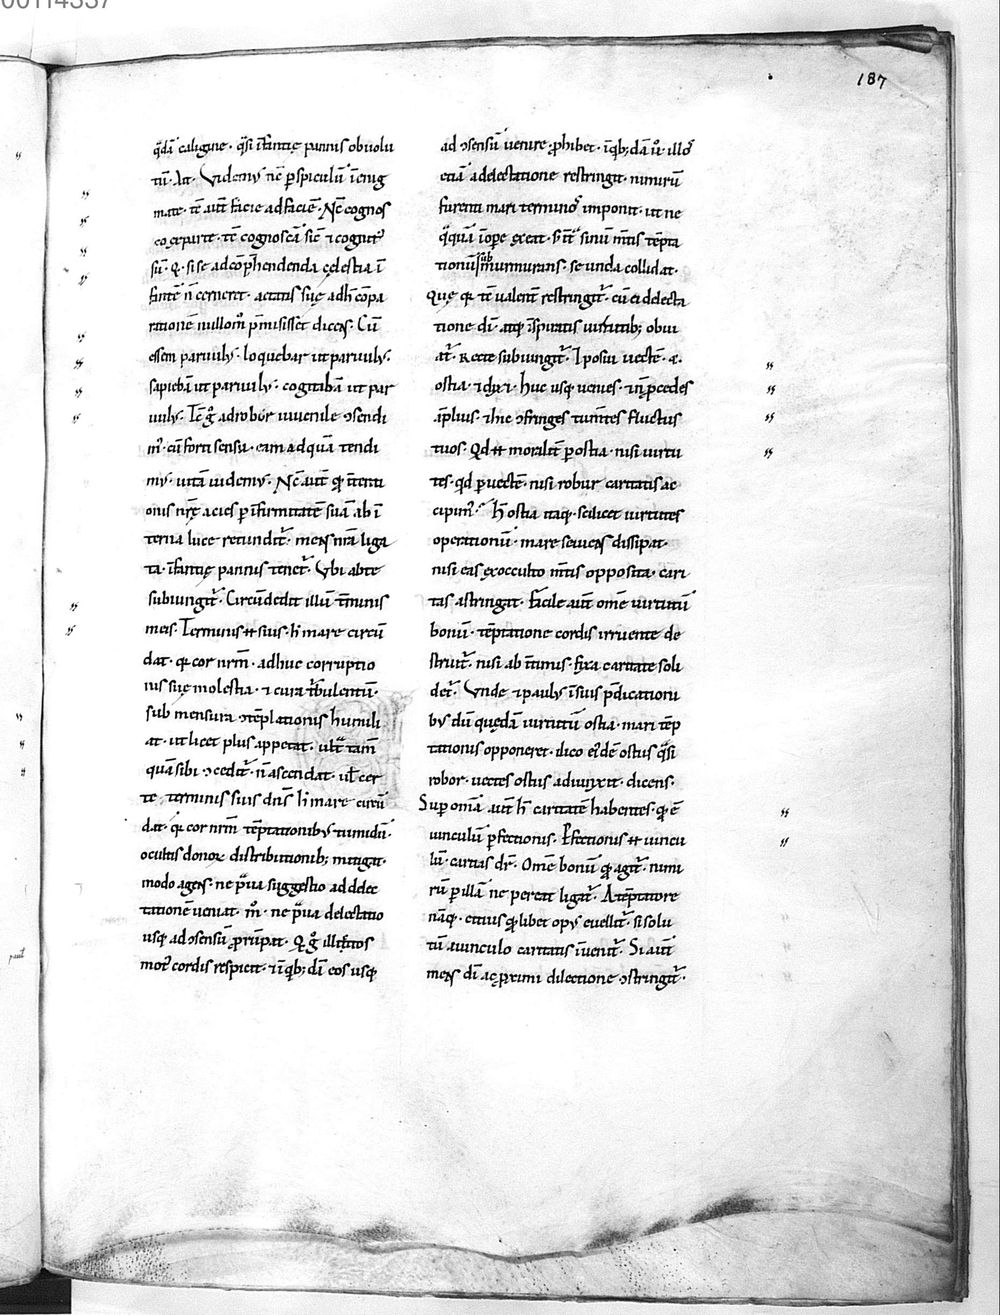 187
q̄dā caligine · q̄si īfantię pannis obuolu
tū · Ait · Videmꝰ nc̄ ꝑ speculū ī enig
mate · tc̄ aut̄ facie ad faciē · Nc̄ cognos
co ex parte · tc̄ cognoscā sic̄ ⁊ cognitꝰ
sū · Q · si se ad cōp̄hendenda cęlestia ī
fantē n̄ cerneret · ętatis suę adh̄ cōpa
rationē nullom̄ p̄misisset dicēs · Cū
essem paruulꝰ · loquebar ut paruulꝰ ·
sapiebā ut paruulꝰ · cogitabā ut par
uulꝰ · Tc̄ g̊ ad robur iuuenile ↄsendi
mꝰ · cū forti sensu · eam ad quā tendi
mꝰ · uitā uidemꝰ · Nc̄ aut̄ qꝫ intenti
onis nrę acies ꝑ īfirmitatē suā ab ī
terna luce retunditꝰ · mēs nrā liga
ta · īfantię pannis tenetꝰ · Vbi apte
subiungitꝰ · Circūdedit illū tꝰminis
meis · Terminis ⁊ suis dn̄s h̄ mare circū
dat · qꝫ cor nrm̄ · adhuc corruptio
nis suę molestia · ⁊ cura tꝰbulentū ·
sub mensura ↄtēplationis humili
at · ut licet plus appetat · ult̄ tam̄
quā sibi ↄceditꝰ · n̄ ascendat · ul̄ cer
te terminis suis dn̄s h̄ mare circū
dat · qꝫ cor nrm̄ tēptationibꝰ tumidū ·
occultis donoꝝ distributionibꝫ mitigat ·
modo agēs · ne p̄ua suggestio ad delec
tationē ueniat · m̊ · ne p̄ua delectatio
usqꝫ ad ↄsensū ꝓrūpat · Q g̊ illicitos
motꝰ cordis respicit · ⁊ ī qꝫbꝫdā eos usqꝫ
ad ↄsensū uenire ꝓhibet · ī qꝫbꝫdā ů illos
etiā a delectatione restringit · nimirū
furenti mari terminos imponit · ut ne
q̄quā īope exeat · s; īt̄ sinū mtis tēpta
tionū murmurans · se unda collidat ·
Que qꝫ tc̄ ualent̄ restringitꝰ · cū ei dilecta
tione dī · atqꝫ īspiratis uirtutibꝫ obui
atꝰ · Recte subiungitꝰ · ⁊ posui uectē · ⁊ ·
ostia · ⁊ dixi · huc usqꝫ uenies · ⁊ n̄ ꝓcedes
āplius · ⁊ hic ↄfringes tumt̄es fluctus
tuos · Qd̄ ⁊ moralit̄ ꝑ ostia · nisi uirtu
tes · qd̄ ꝑ uectē · nisi robur caritatis ac
cipimꝰ · h̄ ostia itaqꝫ · scilicet uirtutes
operationū · mare seuiēs dissipat ·
nisi eas ex occulto mtis opposita · cari
tas astringat · Facile aut̄ om̄e uirtutū
bonū · tēptatione cordis irruente de
struitꝰ · nisi ab īimis · fixa caritate soli
detꝰ · Vnde ⁊ paulꝰ ī suis p̄dicationi
bꝰ dū quędā uirtutū ostia · mari tēp
tationis opponeret · ilico eisdē ostiis q̄si
robor · uectes ostiis adiunxit · dicens ·
Suꝑ omīa aut̄ h̄ caritatē habentes · qꝫ ē
uinculū ꝑfectionis · Ꝑfectionis ⁊ uincu
lū · caritas dr̄ · Om̄e bonū qꝫ agitꝰ · nimi
rū ꝑ illā ne pereat ligatꝰ · A tēptatore
nāqꝫ · citius qꝫlibet opꝰ euellitꝰ · si solu
tū a uinculo caritatis īuenitꝰ · Si aut̄
mēs dī ac ꝓximi dilectione ↄstringitꝰ ·